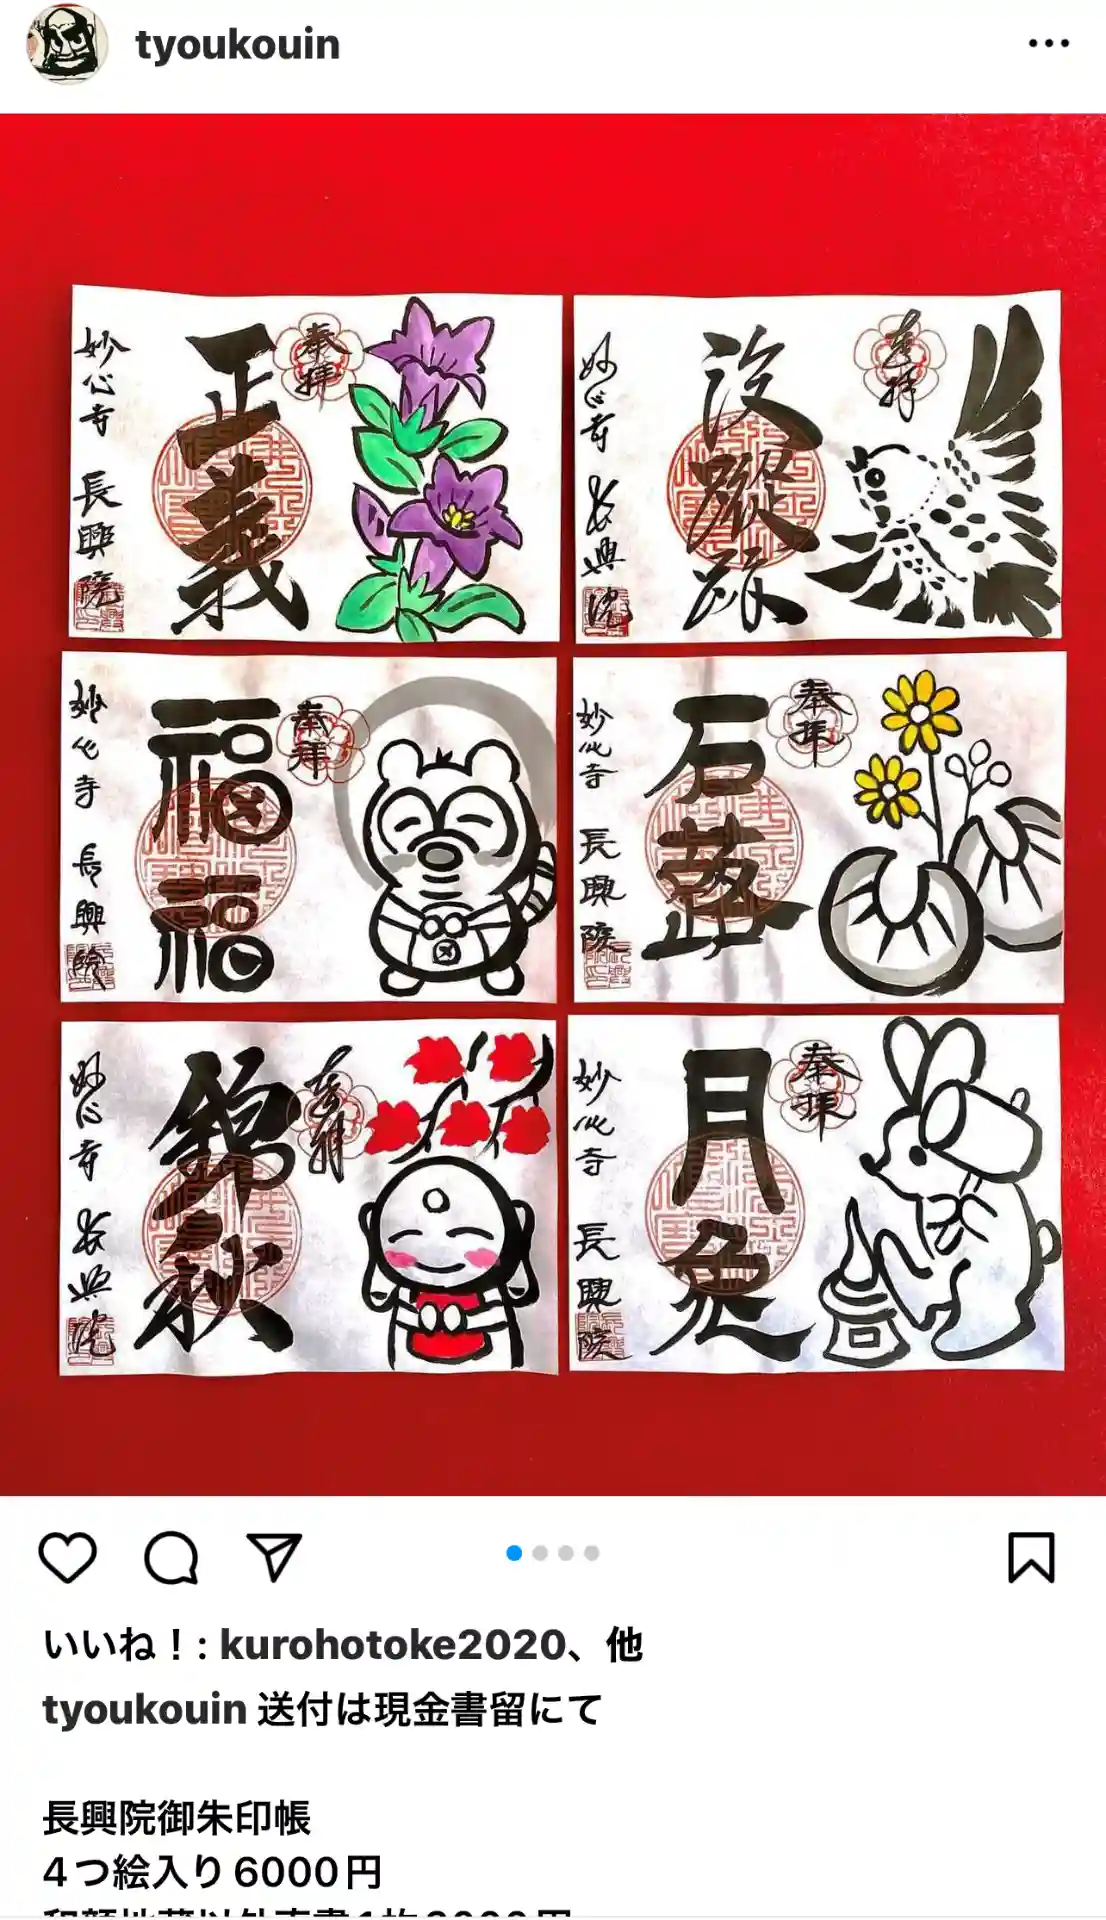 tyoukouin
奉拝
正義
妙心寺 長興院
奉拝
没蹤跡
妙心寺 長興院
奉拝
福福
妙心寺 長興院
奉拝
石蕗
妙心寺 長興院
奉拝
錦秋
妙心寺 長興院
奉拝
月兔
妙心寺 長興院
いいね！: kurohotoke2020、他
tyoukouin 送付は現金書留にて
長興院御朱印帳
4つ絵入り6000円